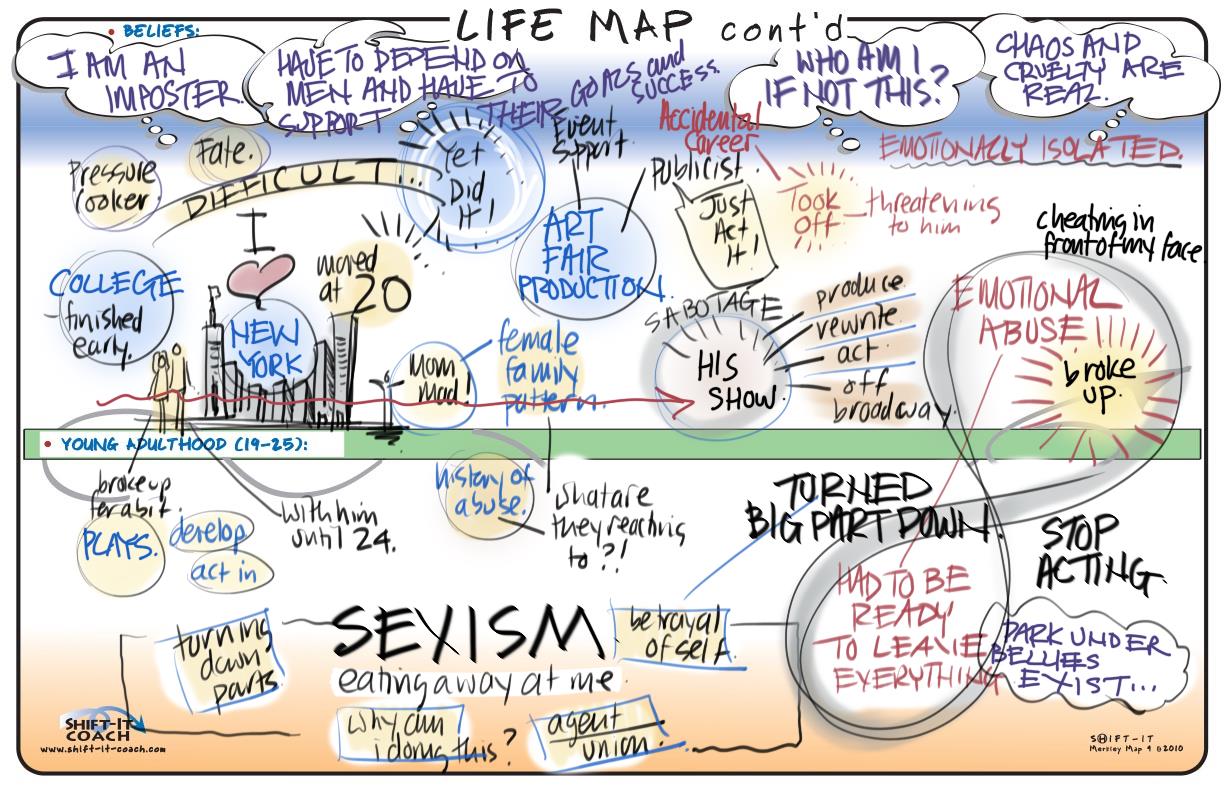 LIFE MAP cont'd
• BELIEFS:
I AM AN
IMPOSTER.
HAVE TO DEPEND ON
MEN AND HAVE TO
SUPPORT THEIR GOALS and
SUCCESS.
WHO AM I
IF NOT THIS?
CHAOS AND
CRUELTY ARE
REAL.
Pressure
cooker.
Fate.
DIFFICULT...
Yet
Did
It!
Event
Spport.
Accidental
Career
Publicist.
EMOTIONALLY ISOLATED.
ART
FAIR
PRODUCTION.
Just
Act
It!
Took
Off
threatening
to him
cheating in
front of my face.
COLLEGE
finished
early.
I
NEW
YORK
moved
at 20
Mom
mad!
female
family
pattern.
SABOTAGE
HIS
SHOW.
produce.
rewrite.
act.
off
broadway.
EMOTIONAL
ABUSE
broke
up.
• YOUNG ADULTHOOD (19-25):
broke up
for a bit.
PLAYS.
develop
act in
with him
until 24.
history of
abuse.
what are
they reacting
to?!
TURNED
BIG PART DOWN!
STOP
ACTING.
HAD TO BE
READY
TO LEAVE
EVERYTHING
DARK UNDER
BELLIES
EXIST...
turning
down
parts.
SEXISM
eating away at me.
betrayal
of self.
why am
i doing this?
agent
union.
SHIFT-IT
COACH
www.shift-it-coach.com
SHIFT-IT
Merkley Map 9 ©2010